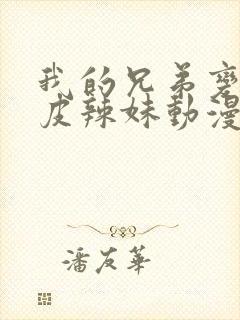 我的兄弟變
皮辣妹動漫
潘友華